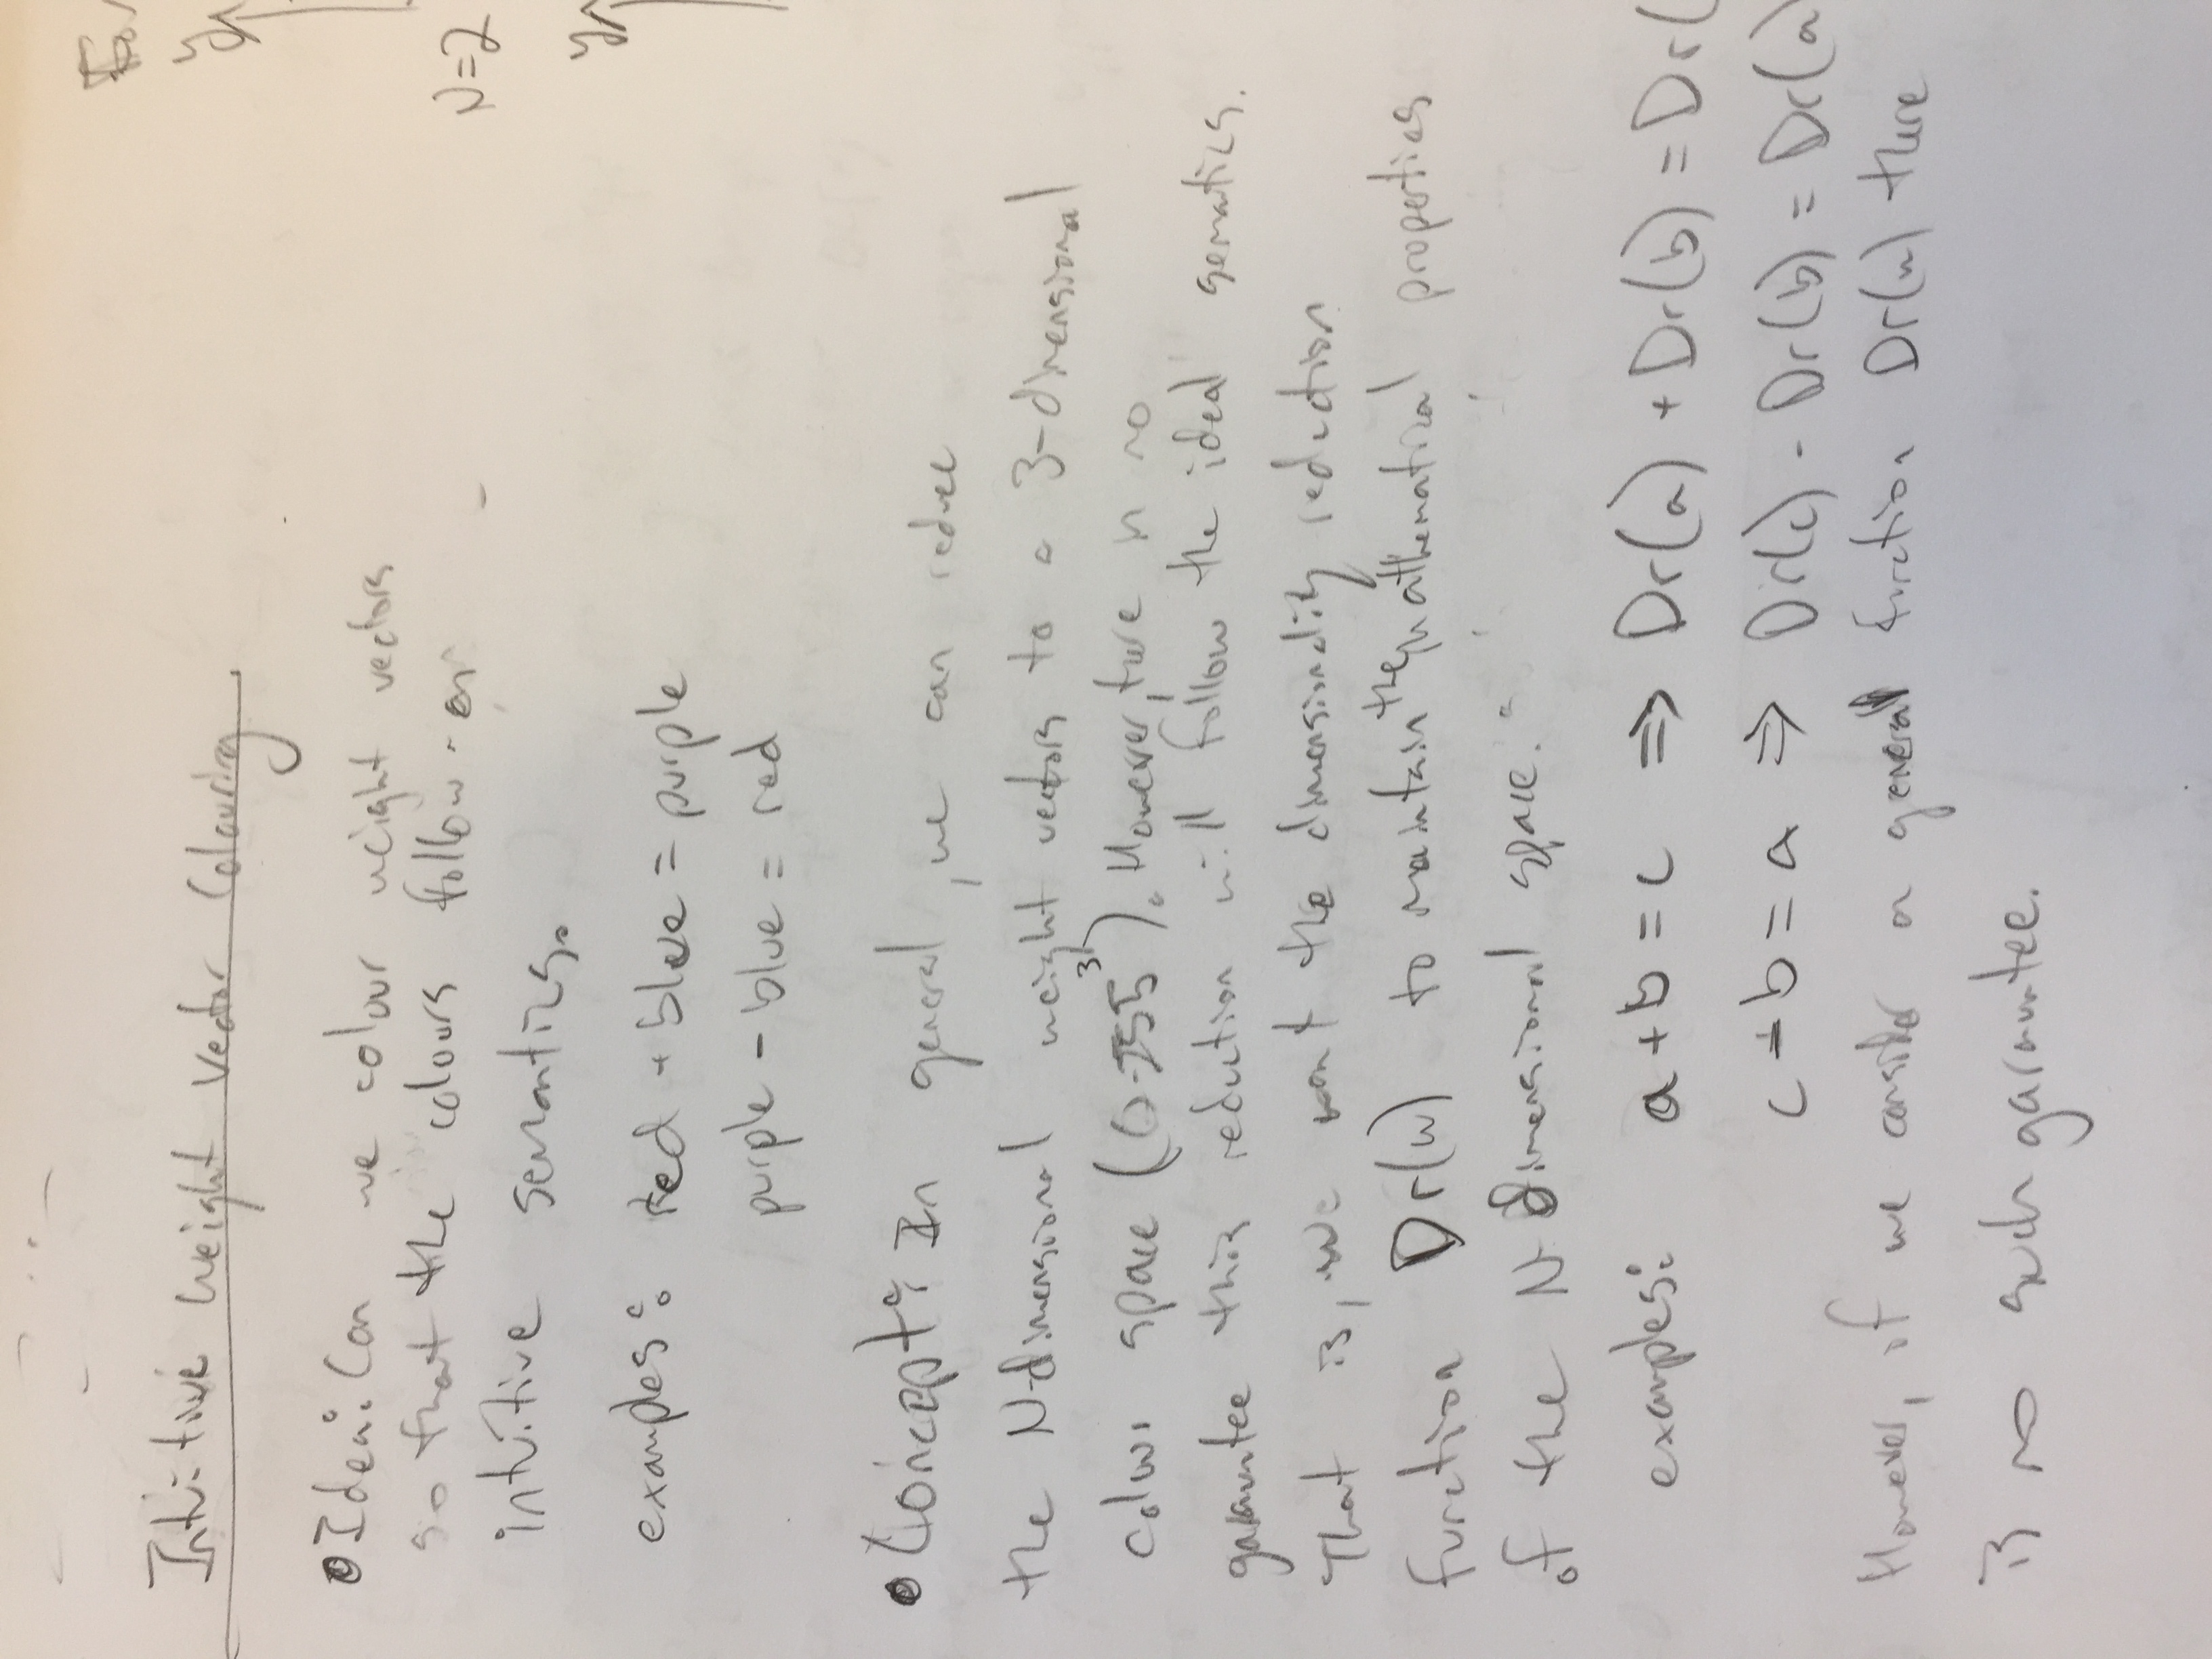 Intuitive Weight Vector Colouring
Idea: Can we colour weight vectors
so that the colours follow an
intuitive semantics.
examples: red + blue = purple
purple - blue = red
Concept: In general, we can reduce
the N-dimensional weight vectors to a 3-dimensional
colour space (0-255³). However, there is no
garauntee this reduction will follow the ideal semantics.
That is, we want the dimensionality reduction
function Dr(w) to maintain the mathematical properties
of the N-dimensional space.
examples: a + b = c ⇒ Dr(a) + Dr(b) = Dr(
c - b = a ⇒ Dr(c) - Dr(b) = Dr(a)
However, if we consider a general function Dr(w) there
is no such garauntee.
For
y
N=2
y